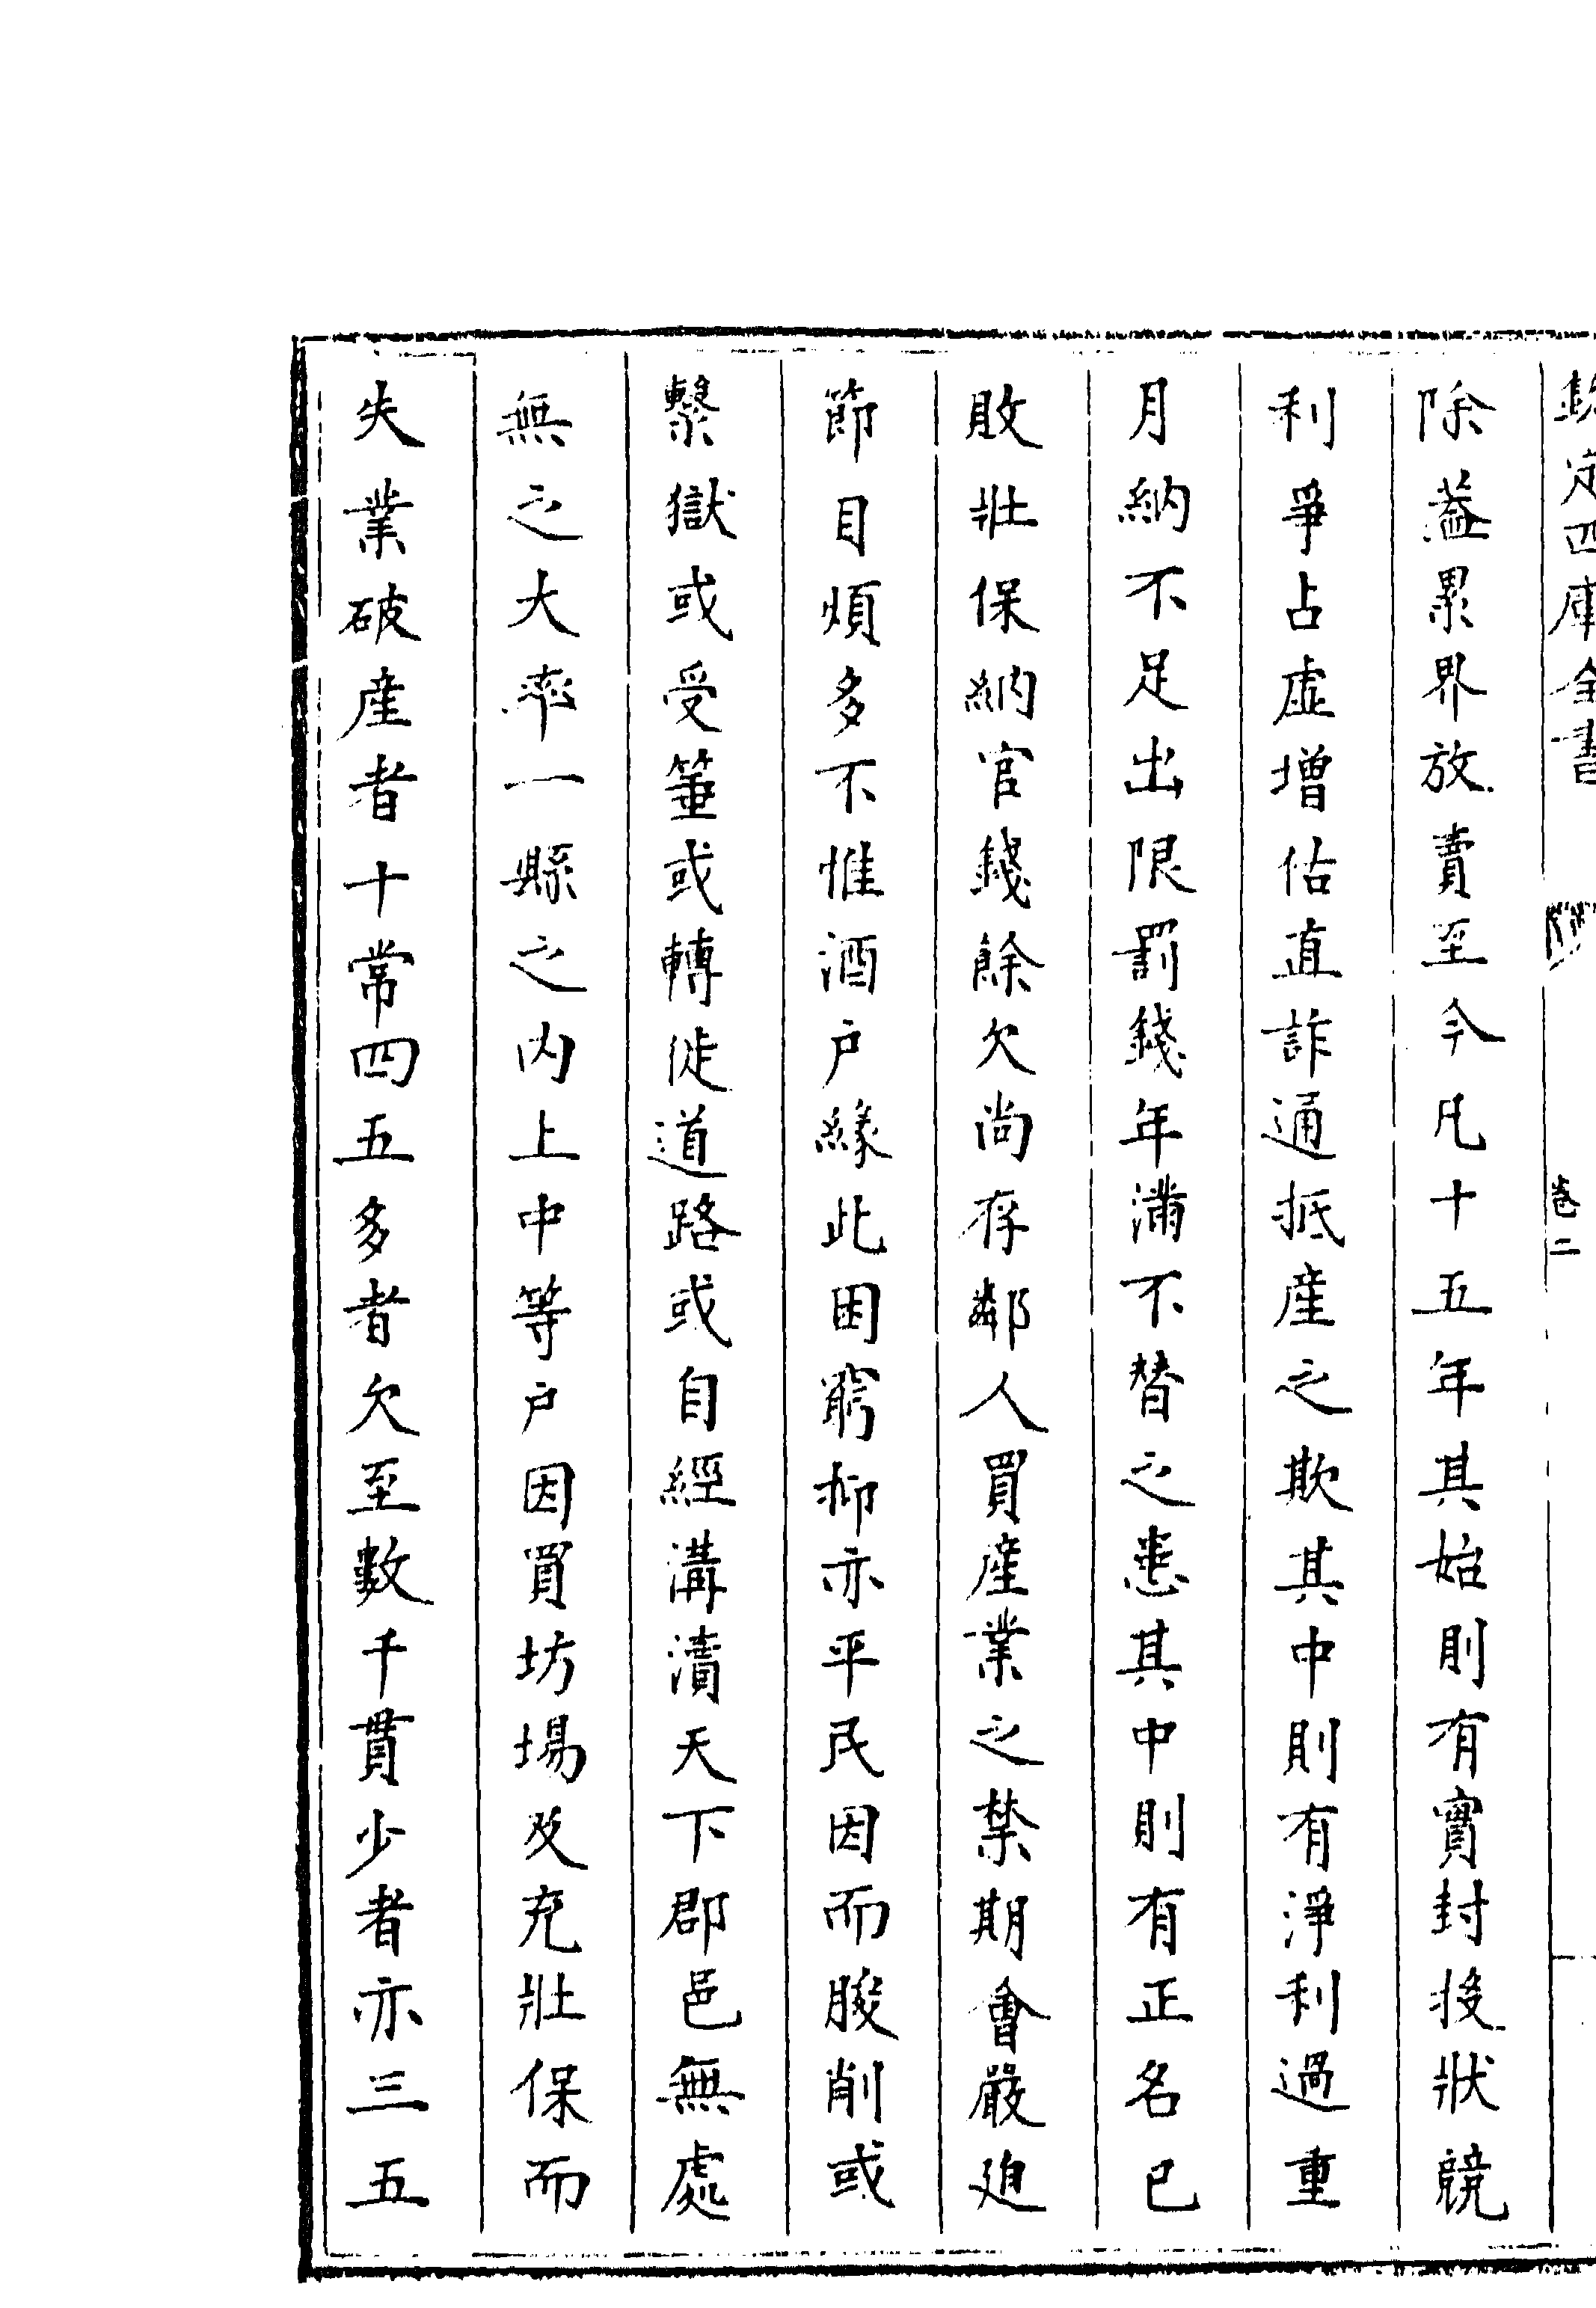 欽定四庫全書
卷二
除葢累界放賣至今凡十五年其始則有實封投狀競
利爭占虛增估直詐通抵産之欺其中則有淨利過重
月納不足出限罰錢年滿不替之患其中則有正名已
敗壯保納官錢餘欠尚存鄰人買産業之禁期會嚴廹
節目煩多不惟酒户緣此困窮抑亦平民因而朘削或
繫獄或受箠或轉徙道路或自經溝瀆天下郡邑無處
無之大率一縣之内上中等户因買坊場及充壯保而
失業破産者十常四五多者欠至數千貫少者亦三五